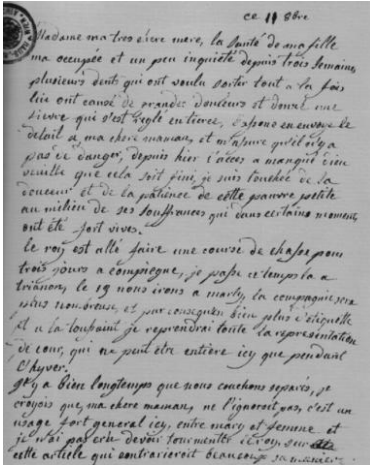 ce 11 8bre
Madame ma tres chere mere, la santé de ma fille
ma occupée et un peu inquiété depuis trois semaines
plusieurs dents qui ont voulu sortir tout a la fois
lui ont causé de grandes douleurs et donné une
fievre qui s'est reglé en tierce, en envoye le
detail a ma chere maman, et m'assure qu'il n'y a
pas de danger, depuis hier l'acces a manqué dieu
veuille que cela soit fini, je suis touchée de la
douceur et de la patience de cette pauvre petite
au milieu de ses souffrances qui dans certains moments
ont été fort vives.
le roi est allé faire une course de chasse pour
trois jours a compiegne, je passe ce temps la a
trianon, le 19 nous irons a marly, la compagnie sera
plus nombreuse, et par consequen bien plus d'etiquette
et a la toussaint je reprendrai toute la representation
de cour, qui ne peut etre entiere icy que pendant
l'hyver.
il y a bien longtemps que nous couchons separés, je
croyois que, ma chere maman, ne l'ignoroit pas, c'est un
usage fort general icy, entre mary et femme et
je n'ai pas cru devoir tourmenter le roy, sur
cette article qui contrarieroit beaucoup sa maniere